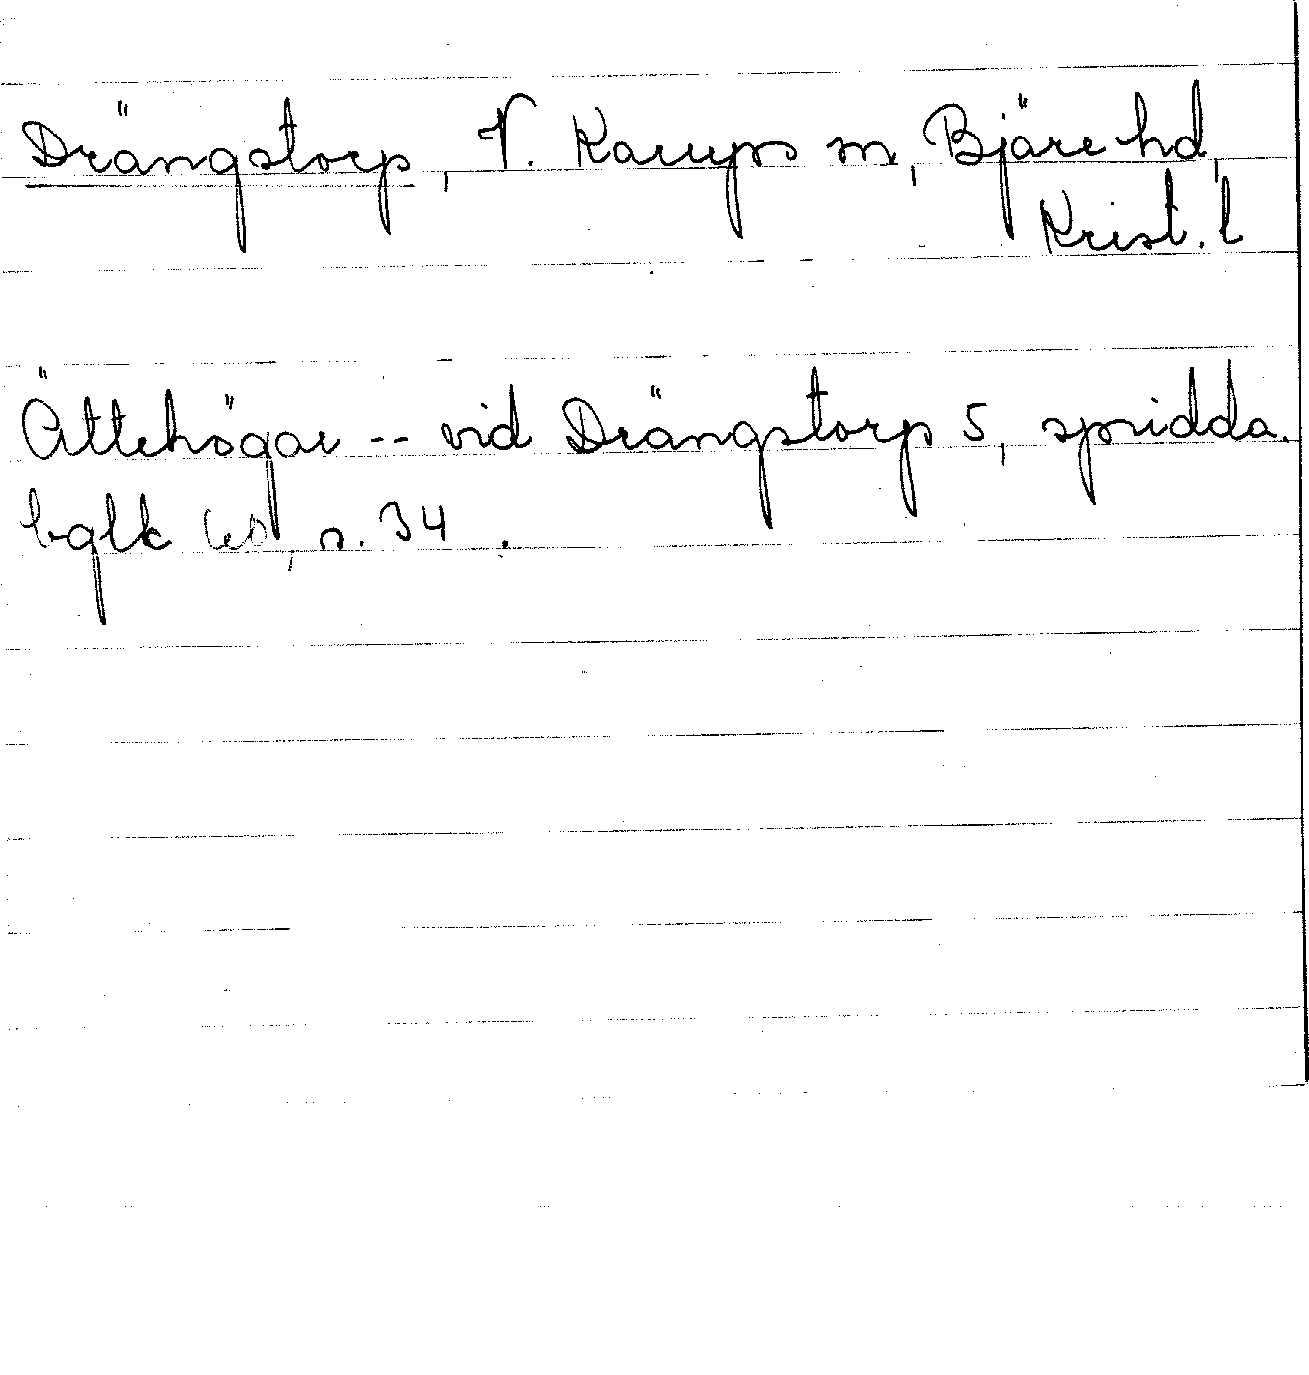 Drängstorp, V. Karups sn, Bjäre hd,
Krist. l
Ättehögar -- vid Drängstorp 5, spridda.
bglk s. 34.